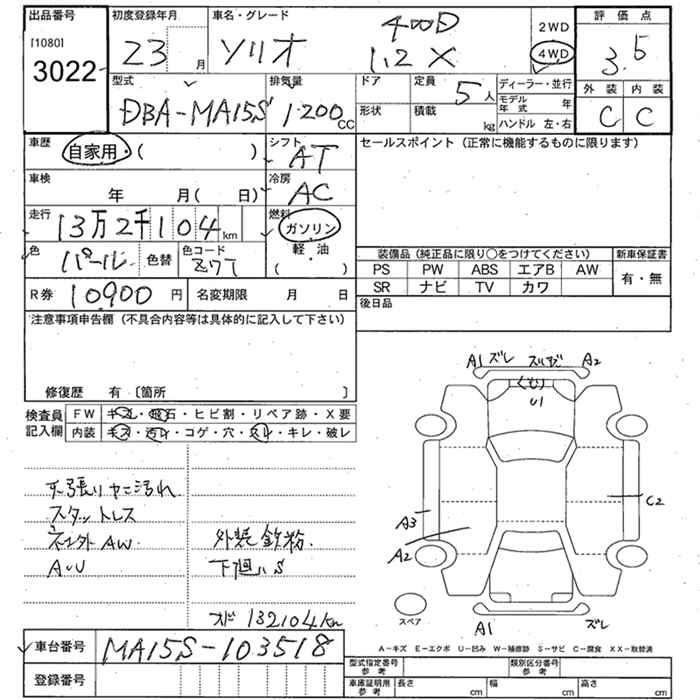 出品番号 初度登録年月 車名・グレード 評価点
[1080] 3022 23 月 ソリオ 4WD 1.2 X 2WD 4WD 3.5
型式 排気量 ドア 定員 ディーラー・並行 外装 内装
DBA-MA15S 1200 CC 5人 モデル年式 年 C C
形状 積載 kg ハンドル 左・右
車歴 自家用・( ) シフト AT セールスポイント (正常に機能するものに限ります)
車検 年 月( 日) 冷房 AC
走行 13万2千104km 燃料 ガソリン・軽・油 ( )
色 パール 色替 色コード Z7T
装備品 (純正品に限り○をつけてください) 新車保証書
PS PW ABS エアB AW 有・無
SR ナビ TV カワ
R券 10900円 名変期限 月 日 後日品
注意事項申告欄 (不具合内容等は具体的に記入して下さい)
修復歴 有 〔箇所 〕
検査員記入欄 FW キズ・飛石・ヒビ割・リペア跡・X要
内装 キズ・汚レ・コゲ・穴・スレ・キレ・破レ
天張りヤニ汚れ
スタットレス
ネエ外AW
AU
外装鉄粉
下廻りS
オド 132104km
A1 ズレ A2
U1
C2
A3
A2
スペア
A1 ズレ
A－キズ E－エクボ U－凹み W－補修跡 S－サビ C－腐食 XX－取替済
車台番号 MA15S-103518
登録番号
型式指定番号 参考 類別区分番号 参考
車庫証明用 参考 長さ cm 幅 cm 高さ cm